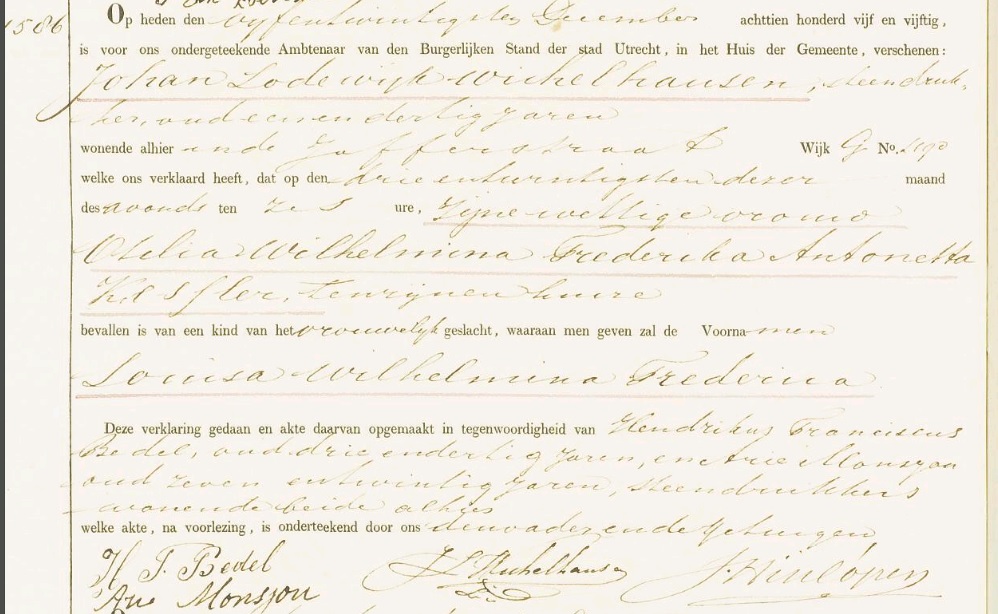 1586
Op heden den vyfentwintigsten December achttien honderd vijf en vijftig,
is voor ons ondergeteekende Ambtenaar van den Burgerlijken Stand der stad Utrecht, in het Huis der Gemeente, verschenen:
Johan Lodewijk Wichelhausen, steendruk-
ker, oud een en dertig jaren
wonende alhier in de Jufferstraat Wijk G No.
welke ons verklaard heeft, dat op den drie entwintigsten dezer maand
des avonds ten zes ure, zijne wettige vrouw
Otilia Wilhelmina Frederika Antonetta
Kessler, tenzijnen huize
bevallen is van een kind van het vrouwelijk geslacht, waaraan men geven zal de Voornamen
Louisa Wilhelmina Frederica
Deze verklaring gedaan en akte daarvan opgemaakt in tegenwoordigheid van Hendrikus Franciscus
Bedel, oud drie en dertig jaren, en Arie Monsjou
oud zeven entwintig jaren, steendrukkers
wonende beide alhier
welke akte, na voorlezing, is onderteekend door ons den vader en de getuigen
H. F. Bedel
JL Wichelhausen
J. Hinlopen
Arie Monsjou